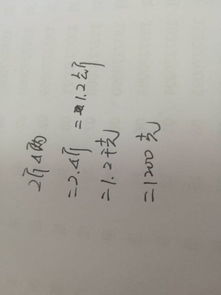 2斤4两
=2.4斤 =1.2公斤
=1.2千克
=1200克